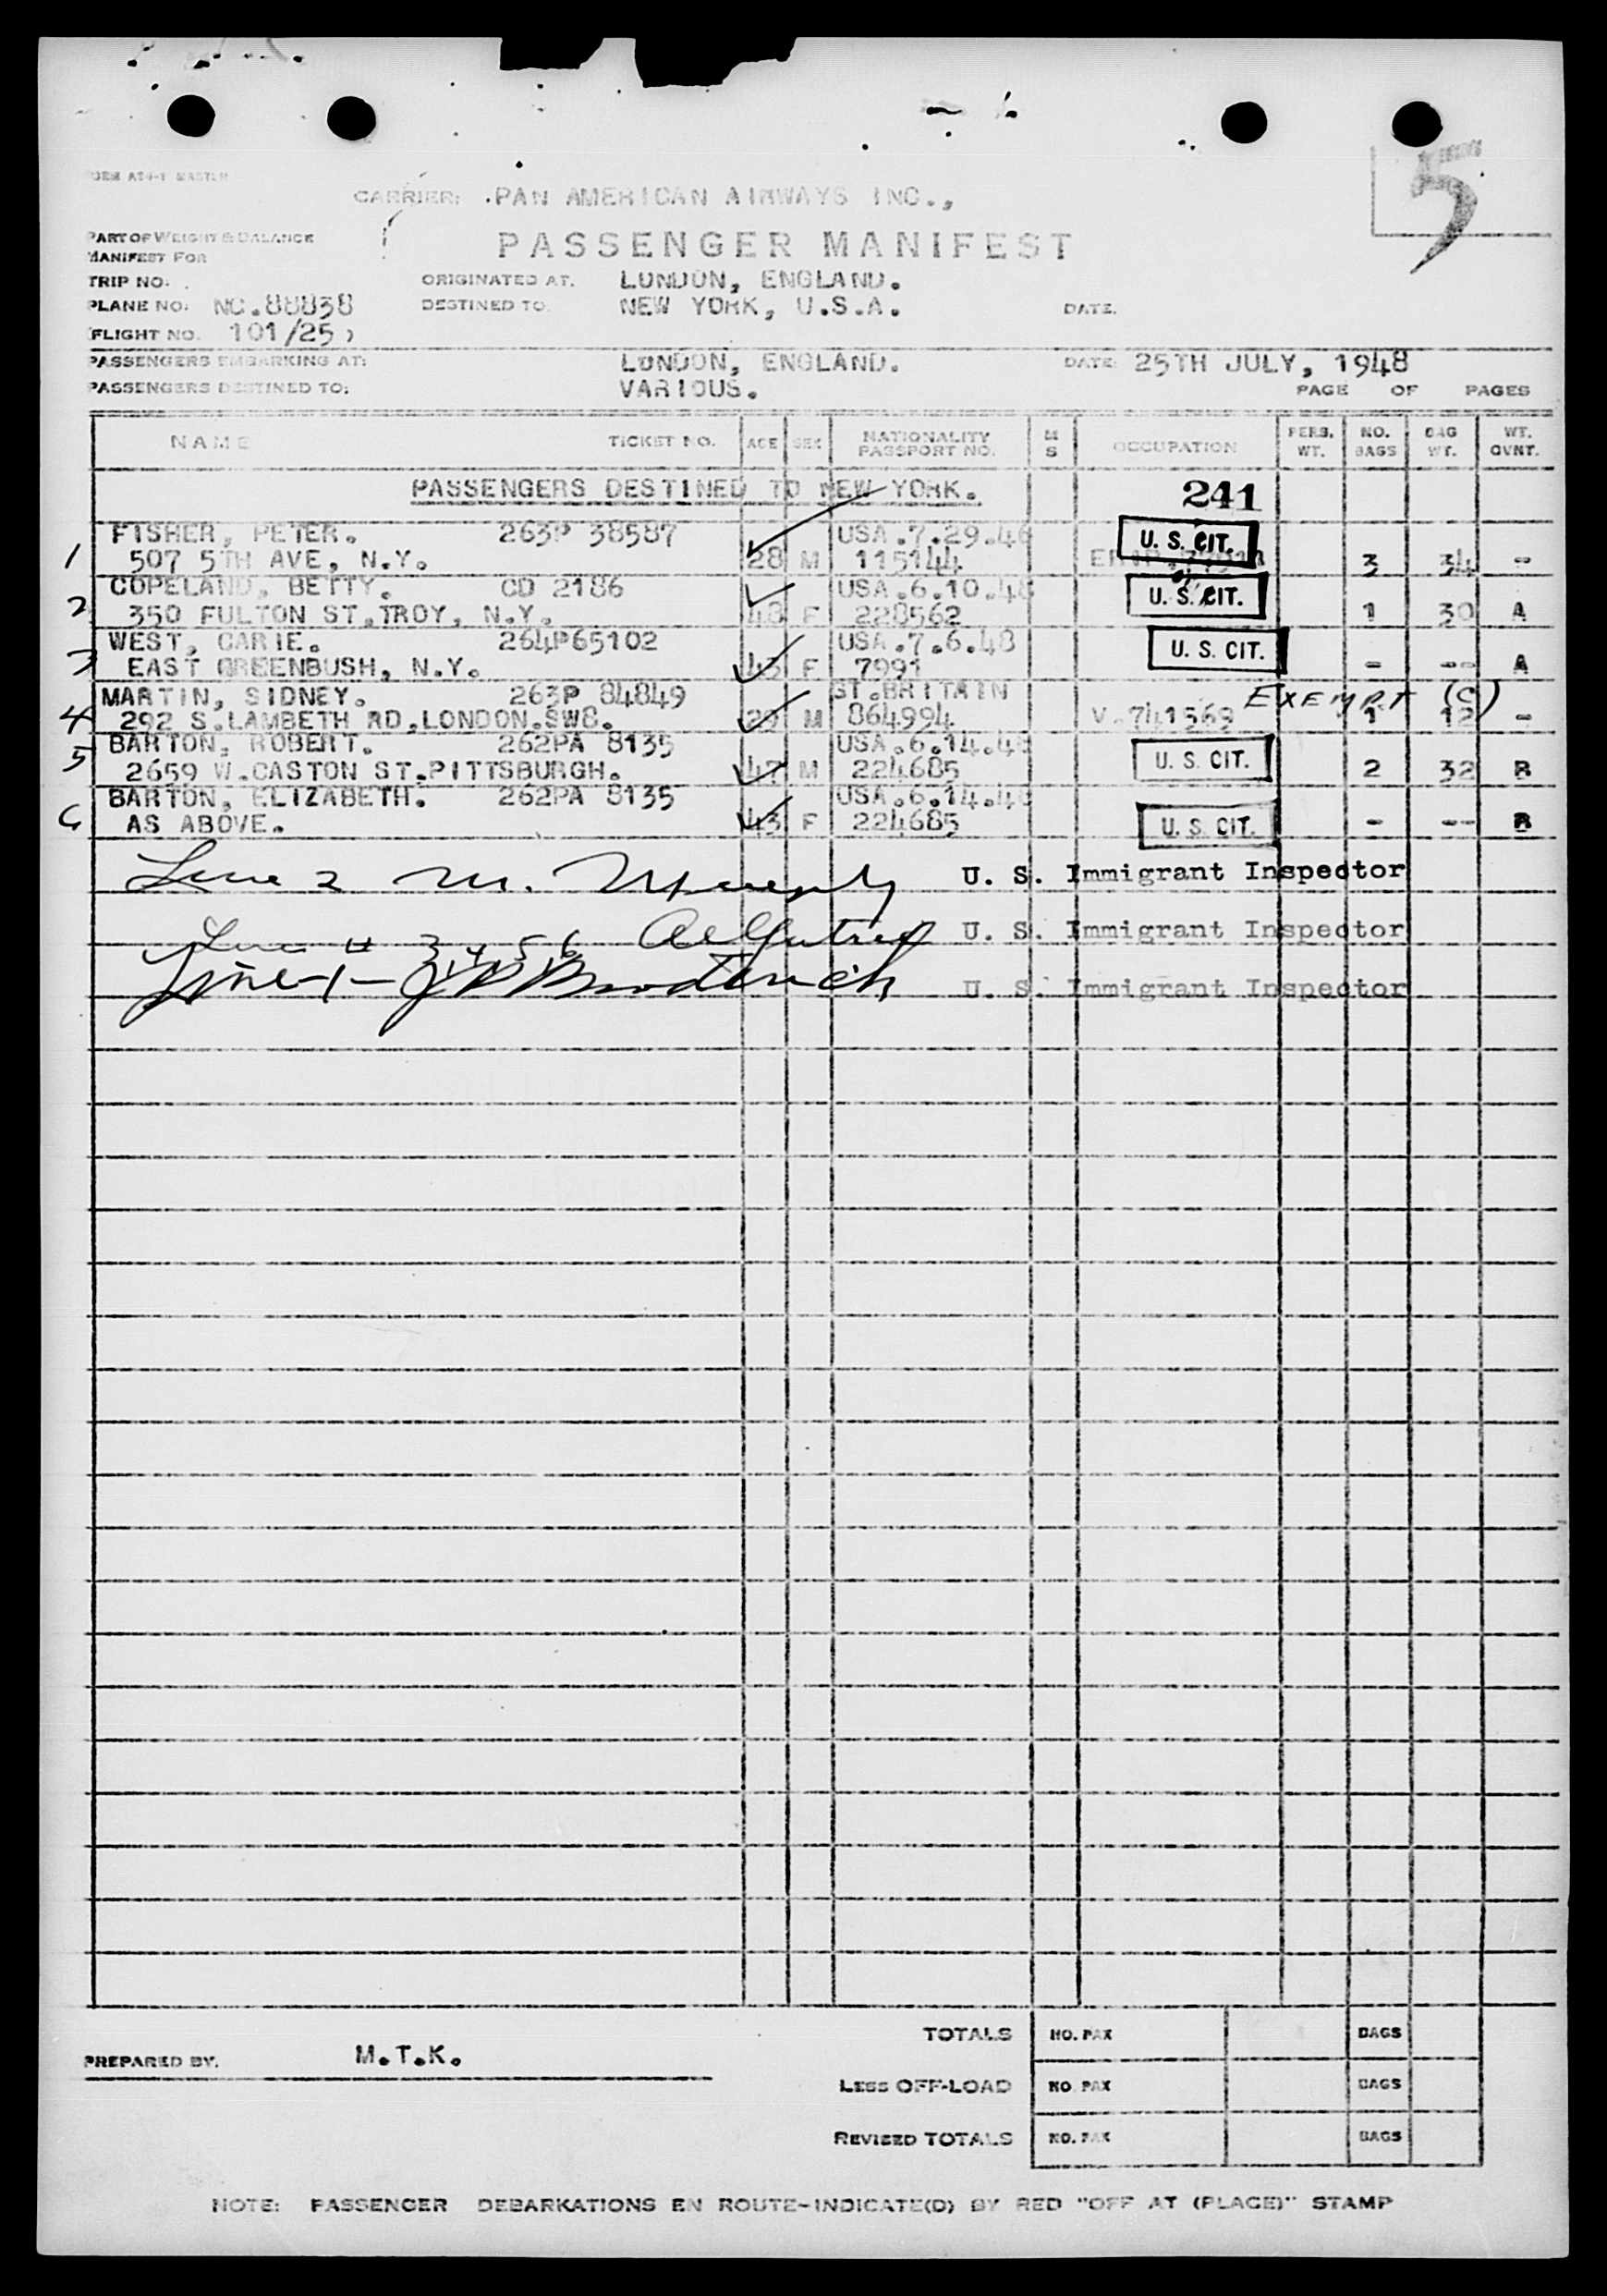 FORM AT-1-1 MASTER
5
CARRIER: PAN AMERICAN AIRWAYS INC.,
PART OF WEIGHT & BALANCE
MANIFEST FOR
PASSENGER MANIFEST
TRIP NO. ORIGINATED AT. LONDON, ENGLAND.
PLANE NO. NC.88838 DESTINED TO. NEW YORK, U.S.A. DATE.
(FLIGHT NO. 101/25)
PASSENGERS EMBARKING AT: LONDON, ENGLAND. DATE: 25TH JULY, 1948
PASSENGERS DESTINED TO: VARIOUS. PAGE OF PAGES
NAME TICKET NO. AGE SEX NATIONALITY PASSPORT NO. M S OCCUPATION PERS. WT. NO. BAGS BAG WT. WT. OVNT.
PASSENGERS DESTINED TO NEW YORK. 241
FISHER, PETER. 263P 38587 USA.7.29.46 U. S. CIT.
1 507 5TH AVE, N.Y. 28 M 115144 3 34 -
COPELAND, BETTY. CD 2186 USA.6.10.48 U. S. CIT.
2 350 FULTON ST.TROY, N.Y. 48 F 228562 1 30 A
WEST, CARIE. 264P65102 USA.7.6.48 U. S. CIT.
3 EAST GREENBUSH, N.Y. 43 F 7991 - -- A
MARTIN, SIDNEY. 263P 84849 ST.BRITAIN EXEMPT (C)
4 292 S.LAMBETH RD,LONDON.SW8. 29 M 864994 V.741569 1 12 -
BARTON, ROBERT. 262PA 8135 USA.6.14.48 U. S. CIT.
5 2659 W.CASTON ST.PITTSBURGH. 47 M 224685 2 32 B
BARTON, ELIZABETH. 262PA 8135 USA.6.14.48 U. S. CIT.
6 AS ABOVE. 43 F 224685 - -- B
Line 2 M. Murphy U. S. Immigrant Inspector
Line # 3, 4, 5, 6 U. S. Immigrant Inspector
Line 1 - J Broderick U. S. Immigrant Inspector
TOTALS NO. PAX BAGS
PREPARED BY. M.T.K.
LESS OFF-LOAD NO. PAX BAGS
REVISED TOTALS NO. PAX BAGS
NOTE: PASSENGER DEBARKATIONS EN ROUTE-INDICATE(D) BY RED "OFF AT (PLACE)" STAMP